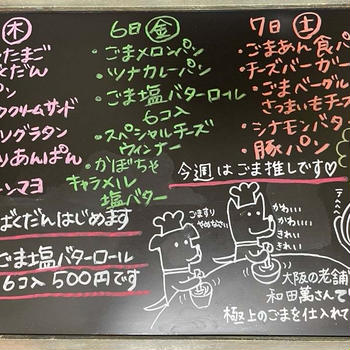 木
たまご
だん
パン
クリームサンド
ングラタン
りあんぱん
ンマヨ
6日金
・ごまメロンパン
・ツナカレーパン
・ごま塩バターロール
6コ入
・スペシャルチーズ
ウインナー
・かぼちゃ
キャラメル
塩バター
7日土
・ごまあん食パ
・チーズバーガー
・ごまベーグル
さつまいもチーズ
・シナモンバタ
・豚パン
今週はごま推しです♡
ばくだんはじめます
ごま塩バターロール
6コ入500円です
ごますり
やめなさい
かわいい
かわいい
きれい
きれい
大阪の老舗
和田萬さんで
極上のごまを仕入れて